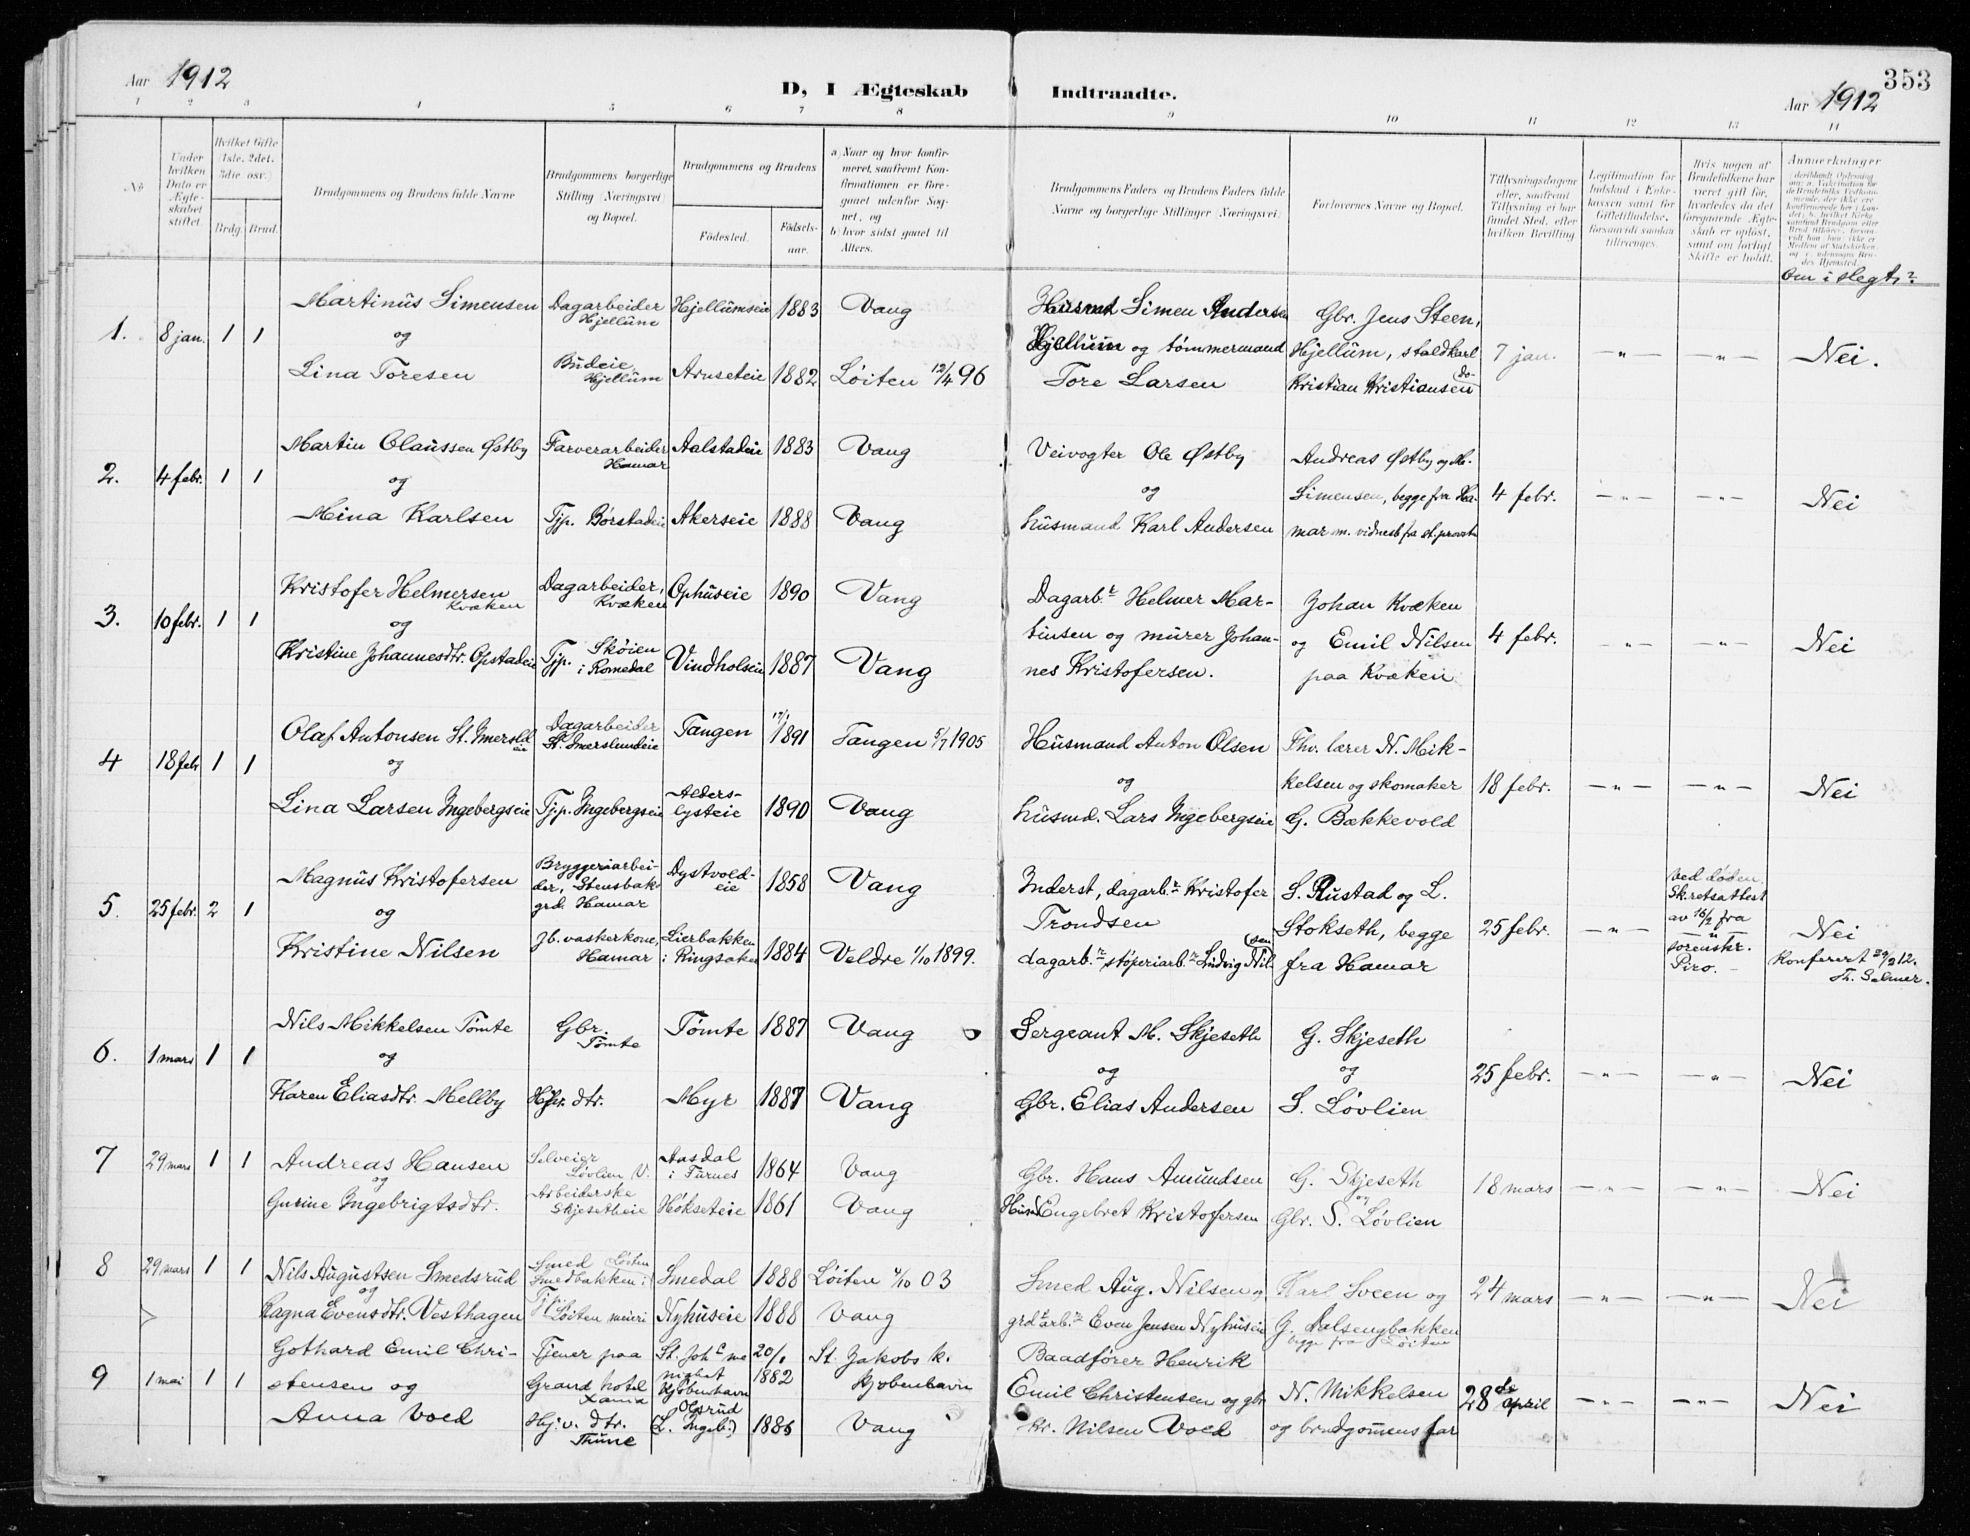 Aar 1912
D, I Ægteskab Indtraadte.
Aar 1912
353
1 2 3 4 5 6 7 8 9 10 11 12 13 14
No
Under hvilken Dato er Ægteskabet stiftet.
Hvilket Gifte 1ste. 2det. 3die osv.)
Brdg. Brud.
Brudgommens og Brudens fulde Navne
Brudgommens borgerlige Stilling (Næringsvei) og Bopæl.
Brudgommens og Brudens
Fødested. Fødselsaar.
a) Naar og hvor konfirmeret, saafremt Konfirmationen er foregaaet udenfor Sognet, og
b) hvor sidst gaaet til Alters.
Brudgommens Faders og Brudens Faders fulde Navne og borgerlige Stillinger (Næringsvei).
Forlovernes Navne og Bopæl.
Tillysningsdagene eller, saafremt Tillysning ei har fundet Sted, efter hvilken Bevilling
Legitimation for Indskud i Enkekassen samt for Giftetilladelse, forsaavidt saadan tiltrænges.
Hvis nogen af Brudefolkene har været gift før, hvorledes da det foregaaende Ægteskab er opløst, samt om lovligt Skifte er holdt.
Anmerkninger
Om i slegt?
1. 8 jan. 1 1
Martinus Simensen
og
Lina Toresen
Dagarbeider Hjellum
Budeie Hjellum
Hjellumseie 1883 Vang
Arnseteie 1882 Løiten 12/4 96
Husmd Simen Andersen
Hjellum og tømmermand
Tore Larsen
Gbr. Jens Steen,
Hjellum, staldkarl
Kristian Kristiansen do-
7 jan. — „ — — „ — Nei.
2. 4 febr. 1 1
Martin Olaussen Østby
og
Mina Karlsen
Farverarbeider Hamar
Tjp. Børstadeie
Aalstadeie 1883 Vang
Akerseie 1888 Vang
Veivogter Ole Østby
og
husmand Karl Andersen
Andreas Østby og M.
Simensen, begge fra Ha-
mar m. vidnesb fra st. provsten
4 febr. — „ — — „ — Nei
3. 10 febr. 1 1
Kristofer Helmersen Kvæken
og
Kristine Johannesdtr. Opstadeie
Dagarbeider, Kvæken
Tjp. Skøien i Romedal
Ophuseie 1890 Vang
Vindholseie 1887 Vang
Dagarb.r Helmer Mar-
tinsen og murer Johan-
nes Kristofersen.
Johan Kvæken
og Emil Nilsen
paa Kvæken
4 febr. — „ — — „ — Nei
4 18 febr 1 1
Olaf Antonsen St. Imerslderie
og
Lina Larsen Ingebergseie
Dagarbeider St. Imerslundeie
Tjp. Ingebergseie
Tangen 17/1 1891 Tangen 5/7 1905
Alders-
lysteie 1890 Vang
Husmand Anton Olsen
og
husmd. Lars Ingebergseie
Fhv. lærer N. Mik-
kelsen og skomaker
G. Bækkevold
18 febr. — „ — — „ — Nei
5. 25 febr. 2 1
Magnus Kristofersen
og
Kristine Nilsen
Bryggeriarbei-
der, Stensbak-
grd. Hamar
Jb. vaskerkone, Hamar
Dystvold-
eie 1858 Vang
Lierbakken
i Ringsaker 1884 Veldre 1/10 1899.
Inderst, dagarb.r Kristofer
Trondsen
dagarb.r støperiarb.r Ludvig Nil- sen
S. Rustad og L.
Stokseth, begge
fra Hamar
25 febr. — „ —
Ved døden.
Sk.retsattest
av 16/2 fra
sorenskr.
Piro.
Nei
Konferert 29/2 12.
Th. Selmer.
6. 1 mars 1 1
Nils Mikkelsen Tømte
og
Karen Eliasdtr. Mellby
Gbr. Tømte
Hjv. dtr.
Tømte 1887 Vang
Myr 1887 Vang
Sergeant M. Skjeseth
og
Gbr. Elias Andersen
G. Skjeseth
og
S. Løvlien
25 febr. — „ — — „ — Nei
7 29 mars 1 1
Andreas Hansen
og
Gurine Ingebrigtsdtr.
Selveier Løvlien V.
Arbeiderske Skjesetheie
Aasdal
i Furnes 1864 Vang
Hokseteie 1861 Vang
Gbr. Hans Amundsen
Husm. Engebret Kristofersen
G. Skjeseth
og
Gbr. S. Løvlien
18 mars — „ — — „ — Nei
8 29 mars 1 1
Nils Augustsen Smedsrud
og
Ragna Evensdtr. Vesthagen
Smed Løiten
Smedbakken i
Tjp.
Løiten meieri
Smedal 1888 Løiten 4/10 03
Nyhuseie 1888 Vang
Smed Aug. Nilsen,
grdarb.r Even Jensen Nyhuseie
Karl Sveen og
G. Dalsengbakken
begge fra Løiten
24 mars — „ — — „ — Nei
9 1 mai 1 1
Gothard Emil Chri-
stensen og
Anna Voed
Tjener paa
Grand hotel
Xania
Hj. v. dtr.
Thune
St. Joh.s me
nighet
Kjøbenhavn
20/1 1882
St. Jakobs k.
Kjøbenhavn
Olsrud
(L. Ingeb.) 1886 Vang
Baadfører Henrik
Emil Christensen og gbr
Kr. Nilsen Voed
N. Mikkelsen
og brudgommens far
28de april — „ — — „ — Nei